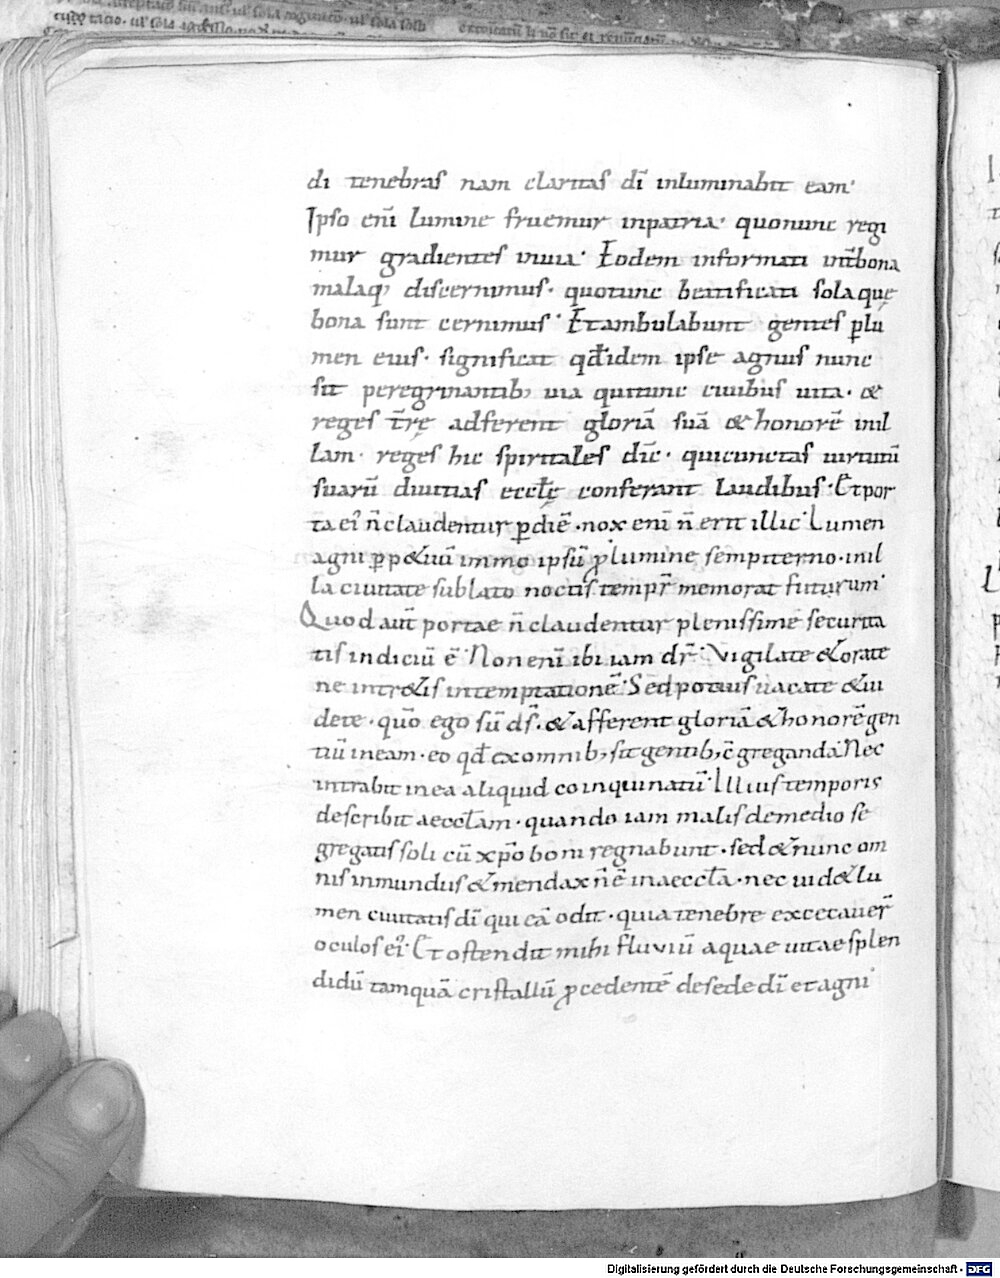 di tenebras nam claritas dī inluminabit eam·
Ipso enī lumine fruemur inpatria· quonunc regi
mur gradientes inuia· Eodem informati int̄bona
malaq; discernimus· quotunc beatificati sola quę
bona sunt cernimus· Et ambulabunt gentes ꝑlu
men eius· significat qđ idem ipse agnus nunc
sit peregrinantib; uia quitunc ciuibus uita· &
reges tr̄ę adferent gloriā suā & honorē inil
lam· reges hic spiritales dic̄· quicunctas uirtutū
suarū diuitias eccłę conferant laudibus· Et por
ta ei' n̄ claudentur ꝑdiē· nox enī n̄ erit illic· Lumen
agni ꝑp&uū immo ipsū ꝓlumine sempiterno· inil
la ciuitate sublato noctis tempr̄ memorat futurum·
Quod aut̄ portae n̄ claudentur plenissime securita
tis indiciū ē· Non enī ibi iam dr̄· Vigilate & orate
ne intr&is intemptationē· Sed potius uacate & ui
dete· quō ego sū ds̄· & afferent gloriā & honorē gen
tiū ineam· eo qđ ex omnib; sit gentib; c̄greganda· Nec
intrabit inea aliquid coinquinatū· Illius temporis
describit aeccłam· quando iam malis demedio se
gregatis soli cū xp̄o boni regnabunt· sed & nunc om
nis inmundus & mendax n̄ ē inaeccła· nec uid& lu
men ciuitatis dī qui eā odit· quia tenebre excecauer̄
oculos ei'· Et ostendit mihi fluviū aquae uitae splen
didū tamquā cristallū ꝓcedentē desede dī et agni·
Digitalisierung gefördert durch die Deutsche Forschungsgemeinschaft - DFG